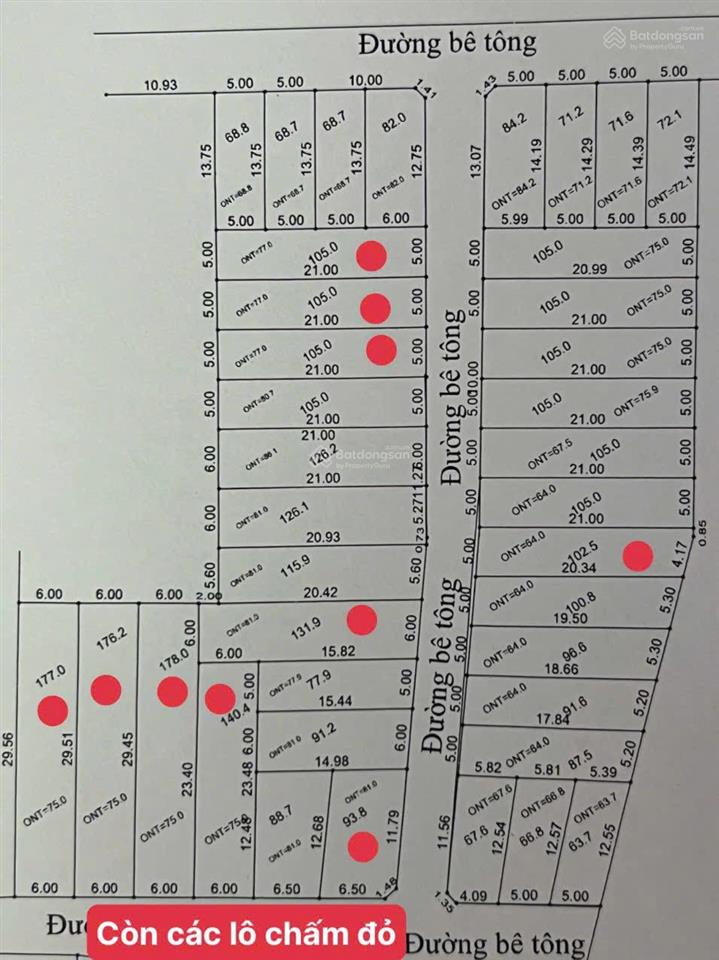 Đường bê tông
Batdongsan
by PropertyGuru
10.93 5.00 5.00 10.00 1.41
1.43 5.00 5.00 5.00
13.75 68.8 13.75 68.7 13.75 68.7 13.75 82.0 12.75
13.07 84.2 14.19 71.2 14.29 71.6 14.39 72.1 14.49
ONT=68.8 ONT=68.7 ONT=68.7 ONT=82.0
ONT=84.2 ONT=71.2 ONT=71.6 ONT=72.1
5.00 5.00 5.00 6.00
5.99 5.00 5.00 5.00
5.00 ONT=77.0 105.0 21.00 5.00
5.00 105.0 20.99 ONT=75.0 5.00
5.00 ONT=77.0 105.0 21.00 5.00
5.00 105.0 21.00 ONT=75.0 5.00
5.00 ONT=77.0 105.0 21.00 5.00
105.0 21.00 ONT=75.0 5.00
Đường bê tông
5.00 ONT=80.7 105.0 21.00 5.00
5.00 10.00 105.0 21.00 ONT=75.9 5.00
21.00
6.00 126.2 21.00 6.00
5.00 ONT=67.5 105.0 21.00 5.00
Batdongsan
by PropertyGuru
6.00 ONT=81.0 126.1 20.93 5.27 11.27
5.00 ONT=64.0 105.0 21.00 5.00
0.73 0.85
5.60 ONT=81.0 115.9 20.42 5.60
5.00 ONT=64.0 102.5 20.34 4.17
6.00 6.00 6.00 2.00
6.00 ONT=81.0 131.9 15.82 6.00
5.00 ONT=64.0 100.8 19.50 5.30
Đường bê tông
6.00
177.0 176.2 178.0 140.4
5.00 ONT=77.9 77.9 15.44 5.00
5.00 ONT=64.0 96.6 18.66 5.30
6.00 ONT=81.0 91.2 14.98 6.00
5.00 ONT=64.0 91.6 17.84 5.20
5.00 ONT=64.0 87.5 5.20
29.56 29.51 29.45 23.40 23.48
5.82 5.81 5.39
ONT=75.0 ONT=75.0 ONT=75.0
12.48 88.7 ONT=81.0 12.68 ONT=81.0 93.8 11.79
11.56 ONT=67.6 67.6 12.54 ONT=66.8 66.8 12.57 ONT=63.7 63.7 12.55
6.00 6.00 6.00 6.00 6.50 6.50 1.48
1.35 4.09 5.00 5.00
Còn các lô chấm đỏ
Đường bê tông